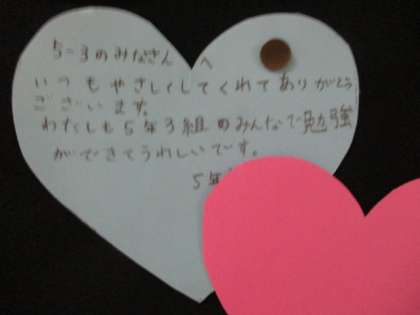 5-3のみなさんへ
いつもやさしくしてくれてありがとう
ございます。
わたしも5年3組のみんなで勉強
ができてうれしいです。
5年